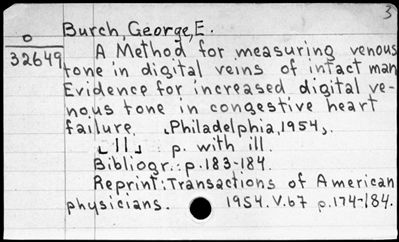 3
Burch, George, E.
o
32649
A Method for measuring venous
tone in digital veins of intact man
Evidence for increased digital ve-
nous tone in congestive heart
failure. [Philadelphia, 1954].
[11] p. with ill.
Bibliogr.: p. 183-184.
Reprint: Transactions of American
physicians. 1954. V.67 p.174-184.